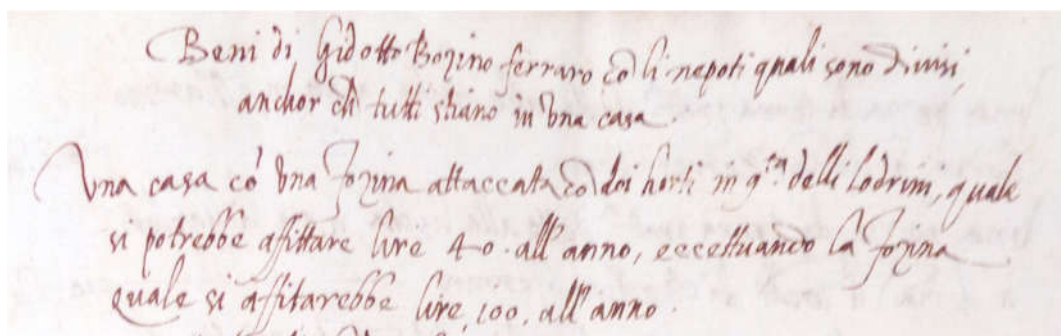 Beni di Gidotto Bozino ferraro cō li nepoti quali sono divisi,
anchor che tutti stiano in una casa.
Una casa cō una fozina attaccata cō doi horti in q.ta delli lodrini, quale
si potrebbe affittare lire 40. all'anno, eccettuando la fozina
quale si affitarebbe lire 100. all'anno.